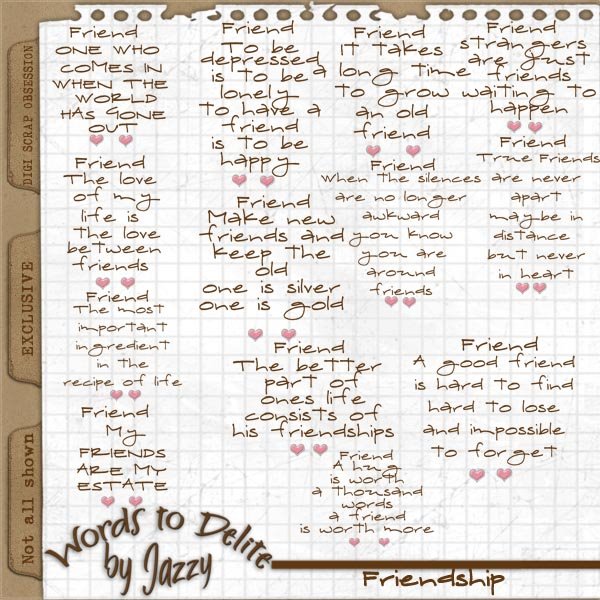 Friend
ONE WHO
COMES IN
WHEN THE
WORLD
HAS GONE
OUT
Friend
The love
of my
life is
the love
between
friends
Friend
The most
important
ingredient
in the
recipe of life
Friend
My
FRIENDS
ARE MY
ESTATE
Friend
To be
depressed
is to be a
lonely
to have a
friend
is to be
happy
Friend
Make new
friends and
keep the
old
one is silver
one is gold
Friend
The better
part of
ones life
consists of
his friendships
Friend
A hug
is worth
a thousand
words
a friend
is worth more
Friend
IT takes
long time
to grow
an old
friend
Friend
when the silences
are no longer
awkward
you know
you are
around
friends
Friend
strangers
are just
friends
waiting to
happen
Friend
True Friends
are never
apart
maybe in
distance
but never
in heart
Friend
A good friend
is hard to find
hard to lose
and impossible
to forget
DIGI SCRAP OBSESSION
EXCLUSIVE
Not all shown
Words to Delite
by Jazzy
Friendship